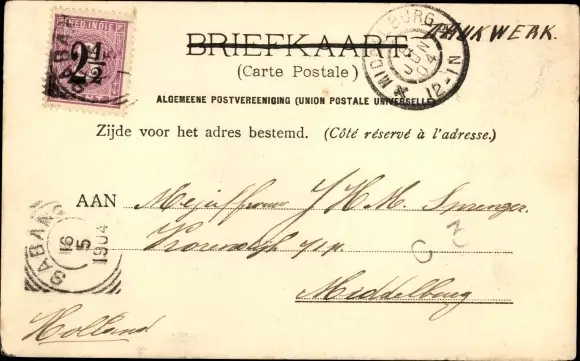 NED.INDIË
2½
SABANG
BRIEFKAART
(Carte Postale)
MIDDELBURG
JUN
04
12-1N
DRUKWERK.
ALGEMEENE POSTVEREENIGING (UNION POSTALE UNIVERSELLE)
Zijde voor het adres bestemd. (Côté réservé à l'adresse.)
AAN Mejuffrouw J H M. Sprenger.
Middelburg
SABANG
16
5
1904
Holland